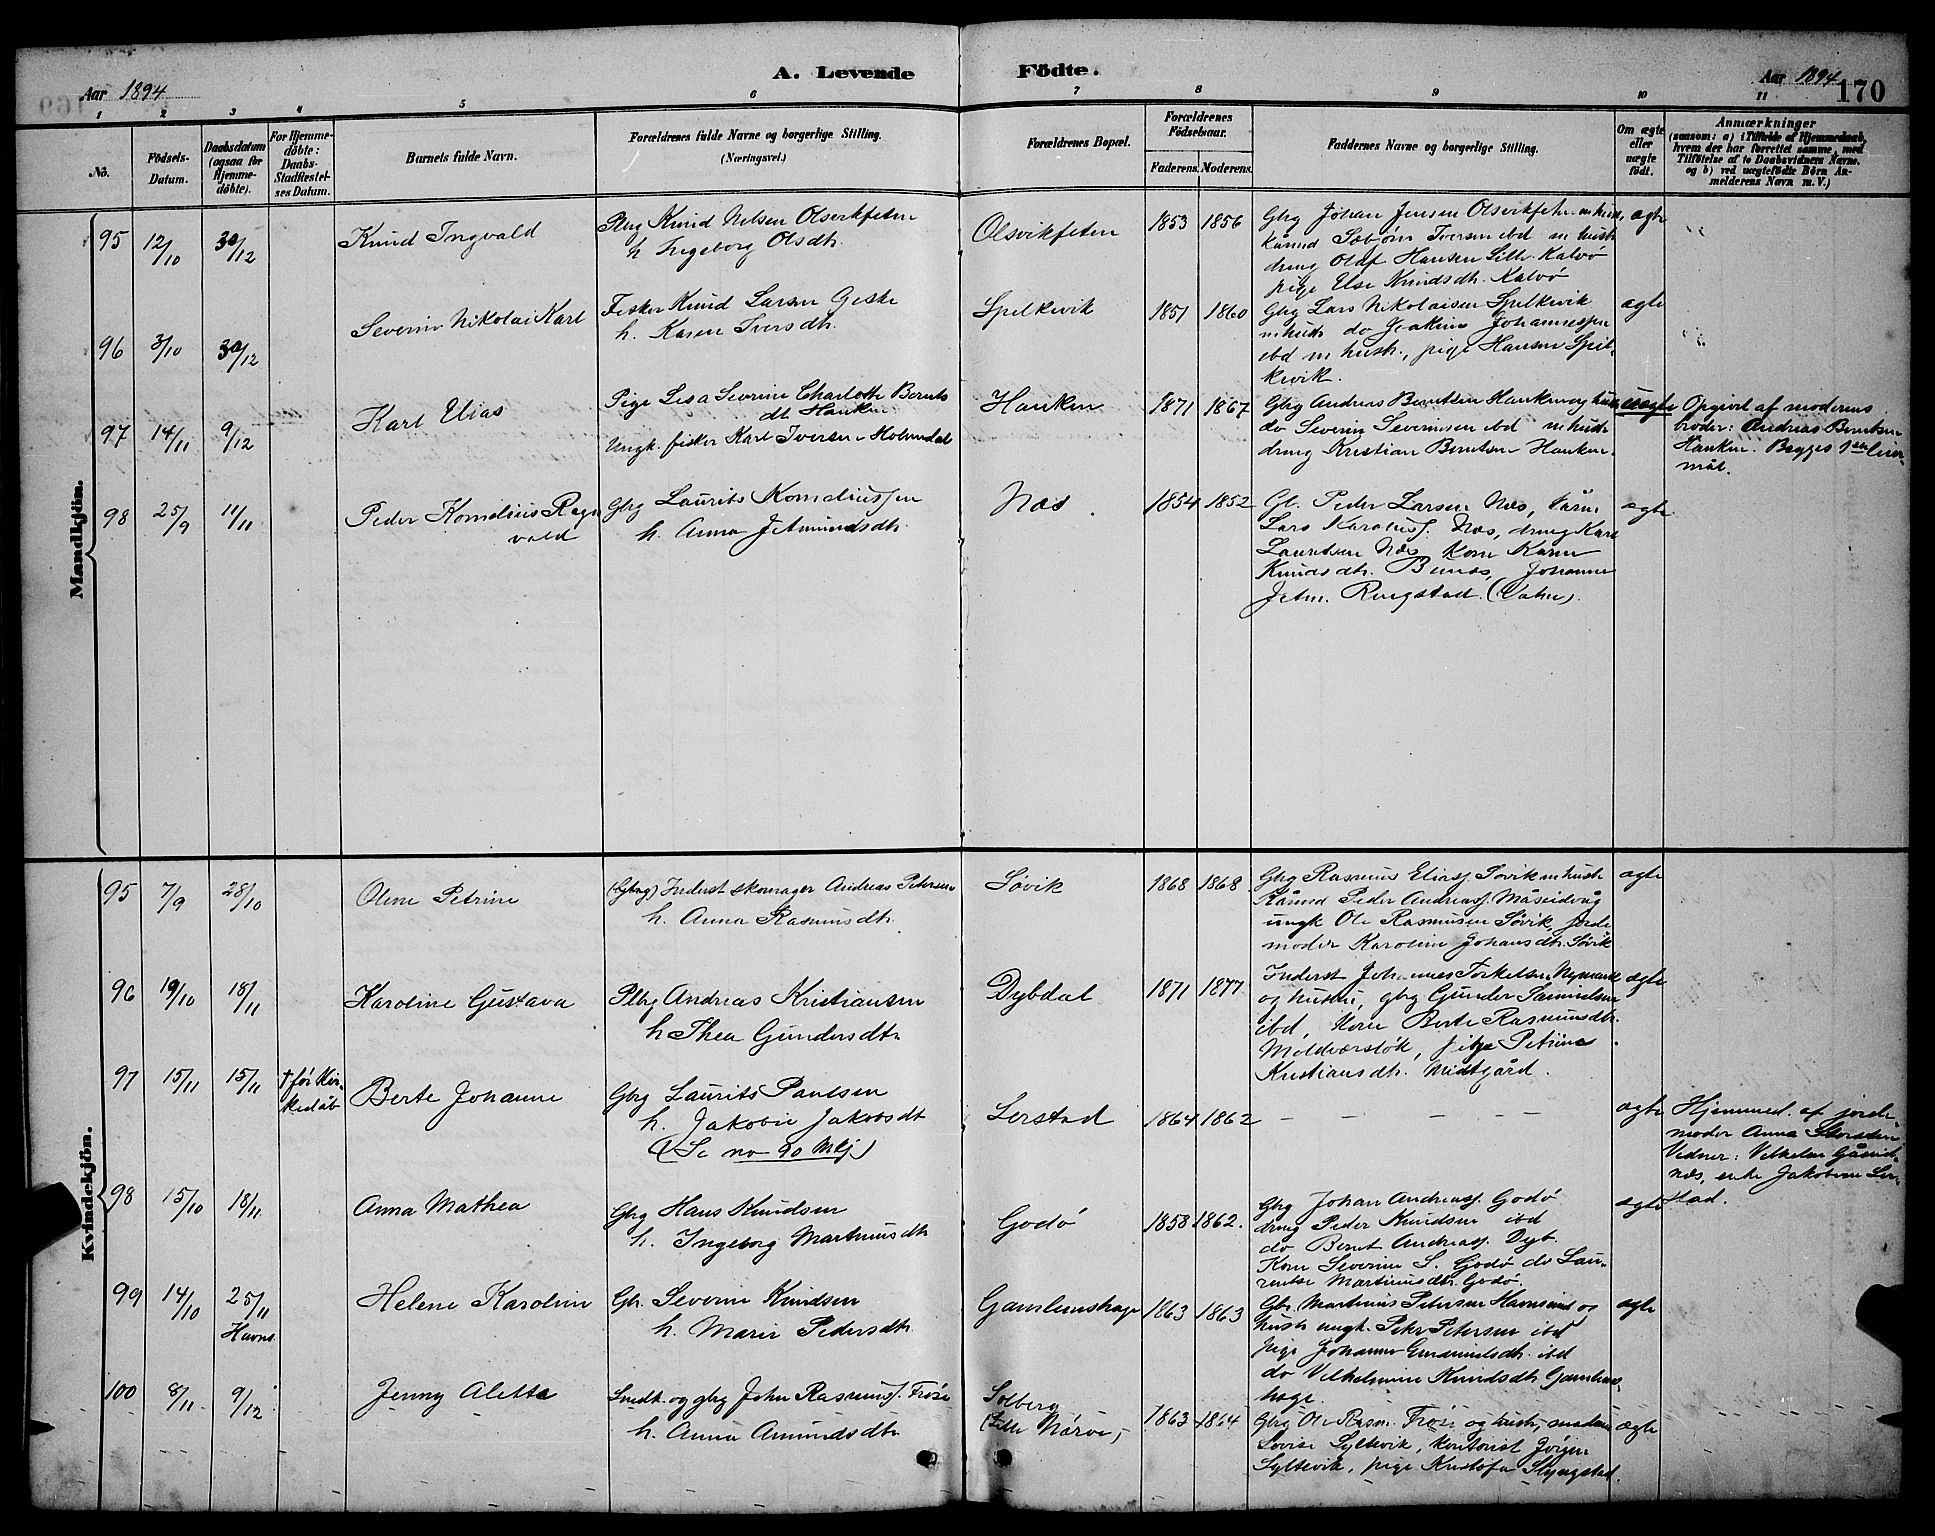 A. Levende Födte.
Aar 1894
Aar 1894
170
1 2 3 4 5 6 7 8 9 10 11
No.
Födsels-Datum.
Daabsdatum (ogsaa for Hjemmedöbte).
For Hjemmedöbte: Daabs-Stadfæstelses Datum.
Barnets fulde Navn.
Forældrenes fulde Navne og borgerlige Stilling.
(Næringsvei.)
Forældrenes Bopæl.
Forældrenes Födselsaar.
Faderens. Moderens.
Faddernes Navne og borgerlige Stilling.
Om ægte eller uægte födt.
Anmærkninger
(saasom: a) i Tilfælde af Hjemmedaab,
hvem der har forrettet samme, med
Tilföielse af to Daabsvidners Navne.
og b) ved uægtefödte Börn Anmelderens Navn m. V.)
Mandkjön.
95 12/10 30/12 Knud Ingvald
Plbg Knud Nelsen Olsvikfeten
h. Ingeborg Olsdtr.
Olsvikfeten 1853 1856
Gbg Johan Jensen Olsvikfeten m hust,
kånd Sæbjörn Iversen ibd m hust
dreng Olaf Hansen Kalvö
pige Else Knudsdtr. Kalvö
ægte
96 3/10 30/12 Severin Nikolai Karl
Fisker Knud Larsen Geske
h. Karen Iversdtr.
Spelkevik 1851 1860
Gbg Lars Nikolaisen Spelkevik
m hust do Joakim Johannessen
ibd m hust., pige Hansen Spelkevik.
ægte
97 14/11 9/12 Karl Elias
Pige Lesa Severine Charlotte Bernts
dt. Hanken
Ungk. fisker Karl Iversen Molundal
Hanken 1871 1867
Gbg Andreas Berntsen Hanken og hust
do Severin Severinsen ibd m hust
dreng Kristian Berntsen Hanken.
uægte
Opgivet af moderens
broder: Andreas Berntsen
Hanken. Begges 1ste leiermål.
98 25/9 11/11 Peder Kornelius Ragnvald
Gbg Laurits Korneliussen
h. Anna Jetmundsdtr.
Næs. 1854 1852
Gb. Peder Larsen Næs,
Lars Karolius. Næs, dreng Karl
Lauritsen Næs, Kone Karen
Knudsdtr. Bunæs, Johanne
Jetm. Ringstad.
ægte
Kvindekjön.
95 7/9 28/10 Oline Petrine
(Gbrg) Inderst skomager Andreas Petersen
h. Anna Rasmusdtr.
Søvik 1868 1868
Gbg Rasmus Eliass. Søvik m hust
Kånd Peder Andreass. Måseidvåg
ungk Ole Rasmusen Søvik, jorde
moder Karoline Johansdtr. Søvik
ægte
96 19/10 18/11 Karoline Gustava
Plbg Andreas Kristiansen
h Thea Gundersdtr.
Dybdal 1871 1877
Inderst Johannes Torkelsen Nymark
og hustru, gbg Gunder Samuelsen
ibd, Kone Berte Rasmusdtr.
Moldværstøk, pige Petrine
Kristiansdtr. Midtgård.
ægte
97 15/11 15/11 † før Kirkedåb Berte Johanne
Gbg Laurits Paulsen
h. Jakobie Jakobsdt
(Se no 90 Mkj)
Lerstad 1864 1862
– – – – –
ægte
Hjemmed. af jordemoder Anna
Vidner: Vilhelm
enke Jakobine Lerstad.
98 15/10 18/11 Anna Mathea
Gbg Hans Knudsen
h. Ingeborg Martinusdtr
Godö 1858 1862.
Gbg Johan Andreass. Godö
dreng Peder Knudsen ibd
do Bernt Andreass. Dyb.
Kone Severine S. Godö do Laurentse Martinusdtr. Godö.
ægte
99 14/10 25/11 Havns. Helene Karoline
Gbr. Severin Knudsen
h. Marie Pedersdtr.
Gamlemshage 1863 1863
Gbr. Martinus Petersen Havnsund og
hust. ungk. Peter Petersen ibd
pige Johanne Gudmundsdtr. ibd
do Vilhelmine Knudsdtr. Gamlemshage
ægte
100 8/11 9/12 Jenny Aletta
Snedk. og gbg John Rasmuss. Frøse
h. Anna Amundsdtr
Solberg
(Lille Nörve) 1863 1864
Gbg Ole Rasm. Frøse og hust.,
Lovise Syltevik, Kontorist Jörgen
Syltevik, pige Kristofa Slyngstad.
ægte